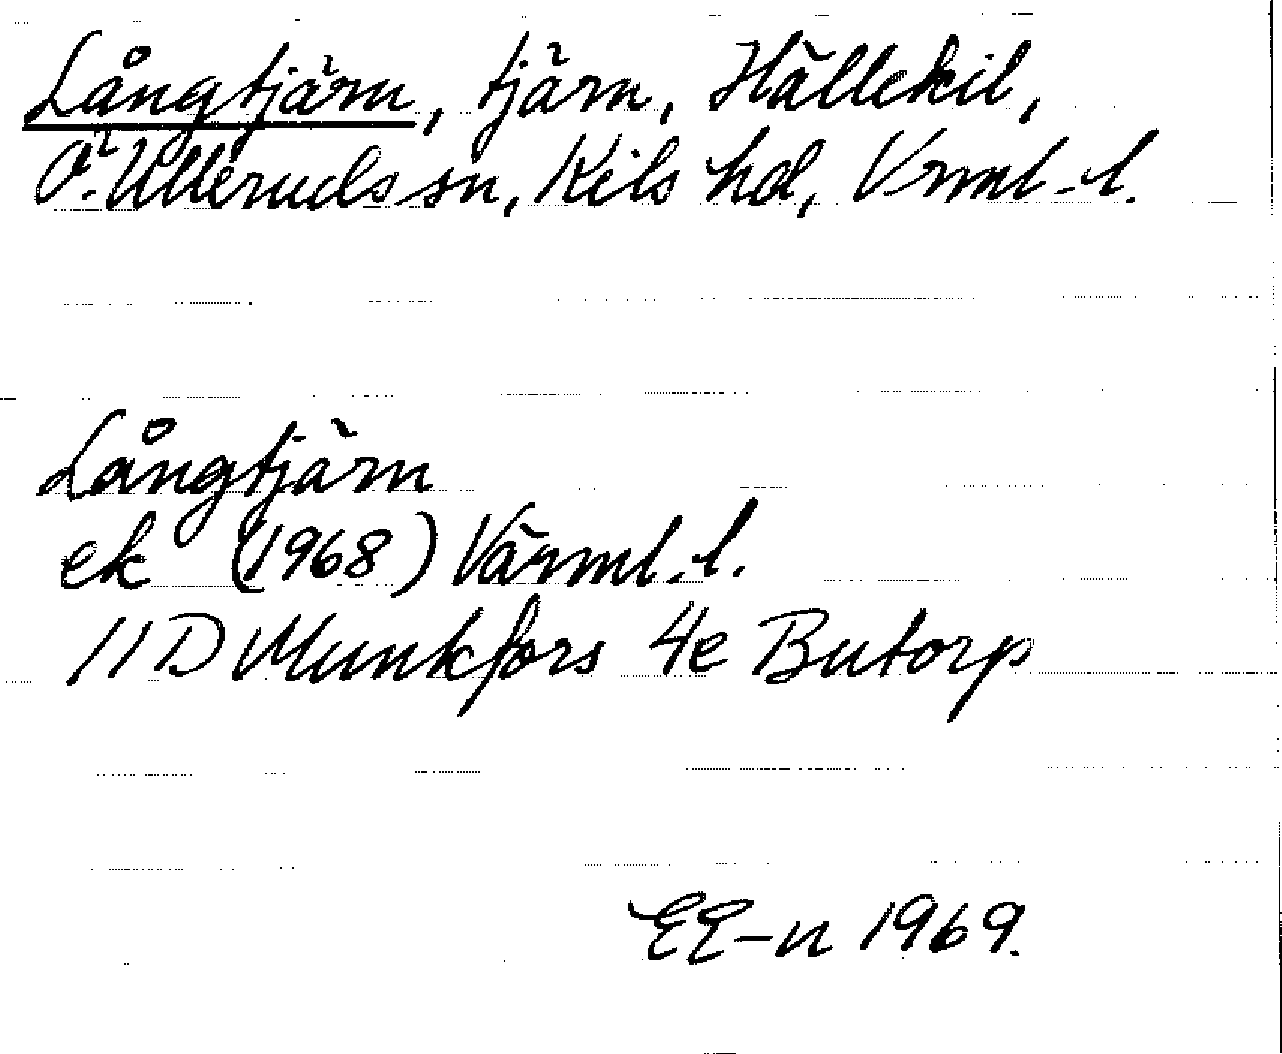 Långtjärn, tjärn, Hällekil,
Ö. Ulleruds sn, Kils hd, Vrml. l.
Långtjärn
ek (1968) Värml. l.
11D Munkfors 4e Butorp
EE-n 1969.